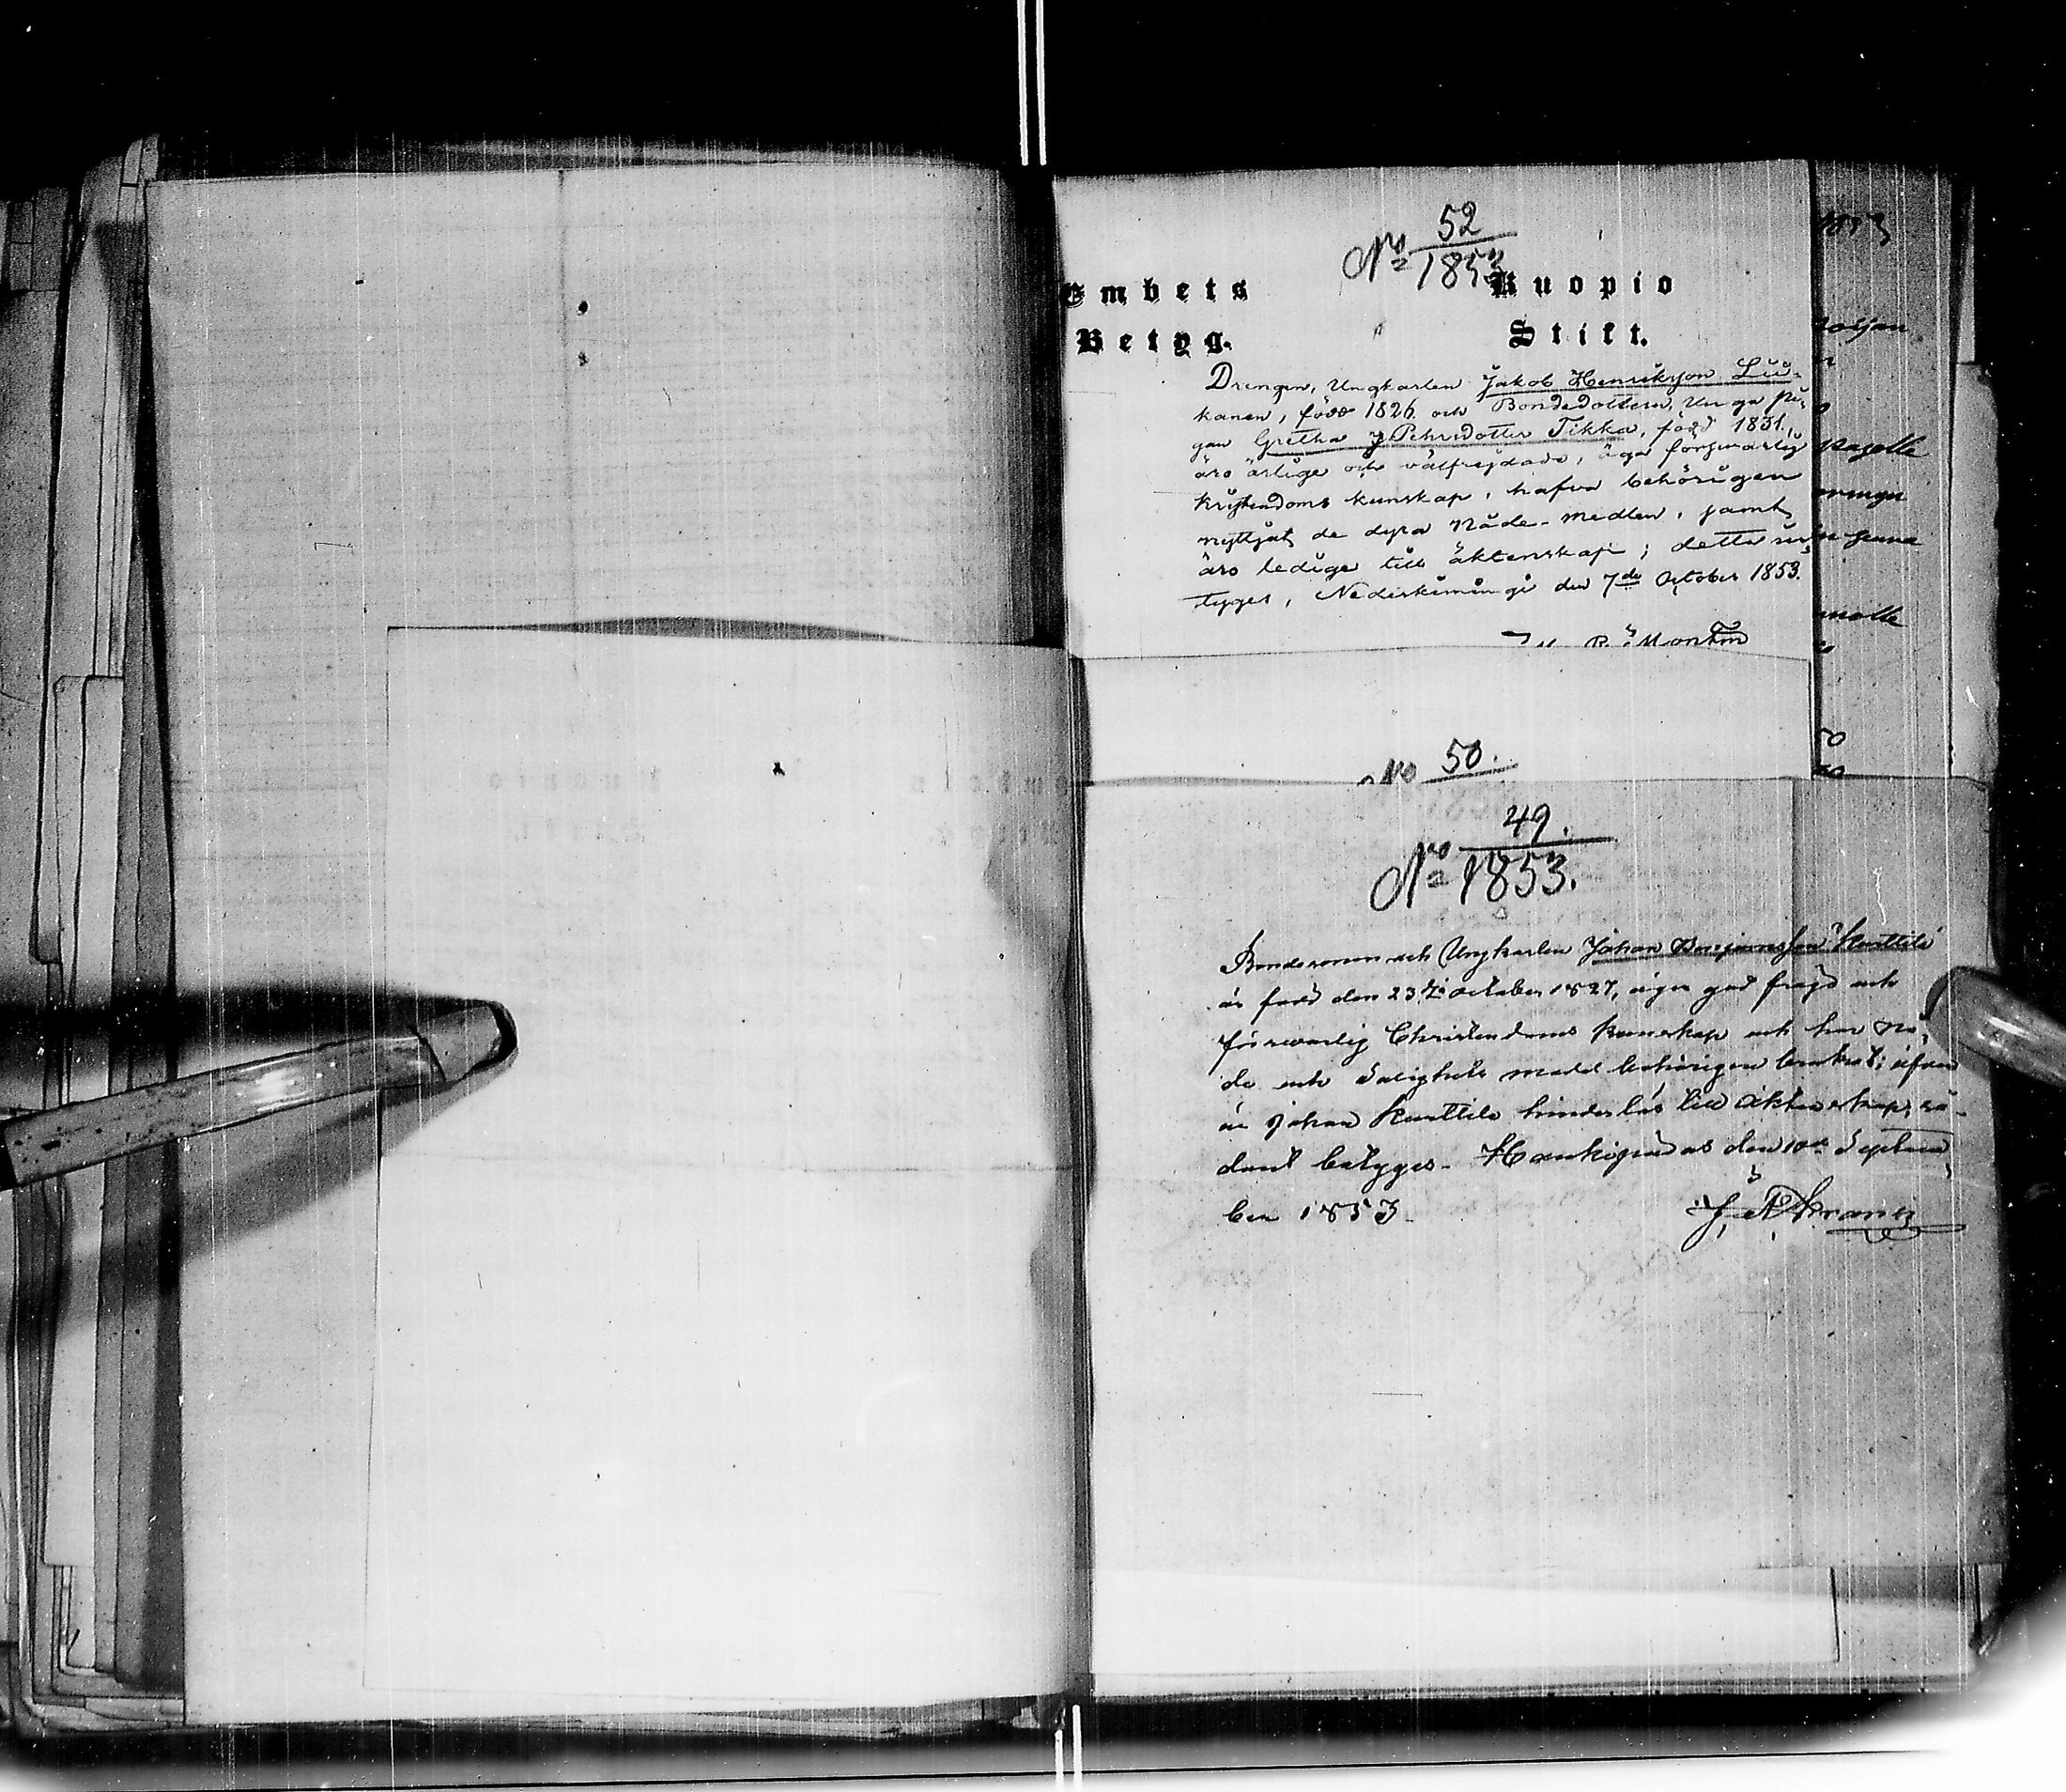 No 52
1853
Embets Kuopio
Betyg. Stift.
Drengen, Ungkarlen Jakob Henriksson Liu-
kanen, född 1826 och Bondedottern, Unga pi-
gan Gretha J. Pehrsdotter Tikka, född 1831,
äro ärlige och välfrejdade, äga försvarlig
kristendoms kunskap, hafva behörigen
nyttjat de dyra Nåde-medlen, samt
äro ledige till äktenskap; detta
tyges, Nederkiminge den 7de October 1853.
Montin
No 50.
49.
No 1853.
Bondesonen och Ungkarlen Johan Benjaminsson Kurttila
är född den 23 October 1827, äger god frejd och
försvarlig Christendoms kunskap och har Nå-
de och Salighets medel behörigen brukat; äfven
är Johan Kurttila hinderlös till äktenskap, så-
dant betyges. Haukipudas den 10de Septem-
ber 1853.
J. A. Franz
1853
50